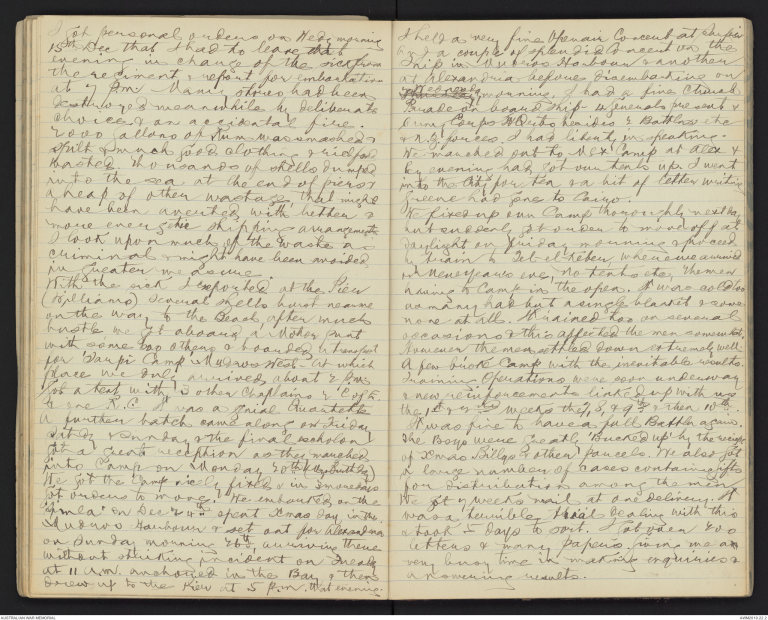 I got personal orders on Wedy morning
15th Dec that I had to leave that
evening in charge of the sick from
the regiment & report for embarkation
at 7 P.m. Many stores had been
destroyed meanwhile by deliberate
choice & an accidental fire.
2000 gallons of Rum was smashed &
spilt & much good clothing & food
wasted. Thousands of shells dumped
into the sea at the end of piers &
a heap of other wastage that might
have been averted with better &
more energetic shipping arrangements
I look upon much of the waste as
criminal & might have been avoided
in greater measure.
With the sick I reported at the Pier
(Williams) Several shells burst near me
on the way to the Beach, after much
hustle we got aboard a Motor Punt
with some 200 others & boarded transport
for Sarpi Camp, Mudros West. At which
place we only arrived about 2 P.m.
Got a tent with 3 other Chaplains 2 C of E
& one R.C. It was a genial Quartette
A further batch came along on Friday
Satdy & Sunday & the final echelon
got a great reception as they marched
into Camp on Monday 20th
We got the Camp nicely fixed & in 3 more days
got orders to move. We embarked on the
on Dec 24th spent Xmas day in the
Mudros Harbour & set out for Alexandria
on Sunday morning 26th, arriving there
without striking incident on Tuesday
at 11 A.m. anchored in the Bay & then
drew up to the Pier at 5 P.m. that evening.
I held a very fine Open air Concert at Sarpi
& a couple of splendid concerts on the
Ship in Mudros Harbour & another
at Alexandria before disembarking on
Wednesday morning. I had a fine Church
Parade on board Ship 4 generals present &
Corps HQrs besides 2 Battlns etc
& N.Z. forces. I had liberty in speaking.
We marched out to Camp at Alex &
by evening had got our tents up. I went
into the City for tea & a bit of letter writing
Greene had gone to Cairo.
We fixed up our Camp thoroughly next day
but suddenly got order to move off at
daylight on Friday morning & proceed
by train to Tel-el-Kebir, where we arrived
on New years eve, no tents etc, the men
having to Camp in the open. It was cold too
as many had but a single blanket & some
none at all. It rained too on several
occasions & this affected the men somewhat,
However the men settled down extremely well
A few broke Camp with the inevitable results.
Training Operations were soon underway
& new reinforcements linked up with us
the 1st & 2nd weeks the 7, 8, & 9th & then 10th.
It was fine to have a full Battln again.
The Boys were greatly "bucked up" by the receipt
of Xmas Billys & other parcels. We also got
a large number of Cases containing gifts
for distribution among the men
We got 7 weeks mail at one delivery. It
was a terrible trial dealing with this
& took 5 days to sort. I got over 200
letters & many papers, giving me a
very busy time in making inquiries &
answering results.
AUSTRALIAN WAR MEMORIAL
AWM2019.22.2